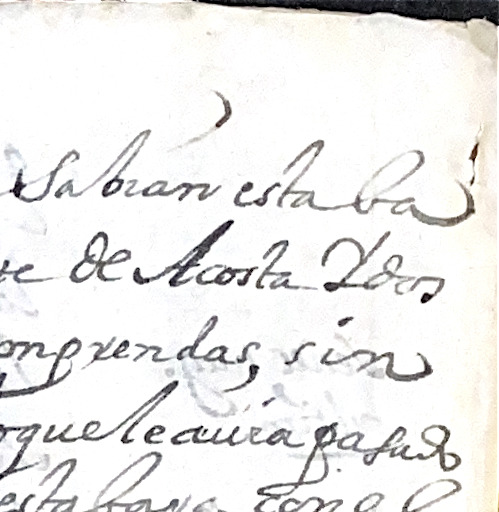 Sabian estaba
de Acosta Y dos
prendas, sin
que le auia pasado
estaba con el